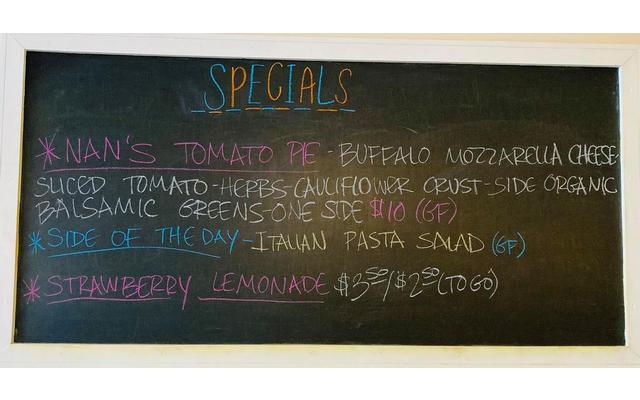 SPECIALS
*NAN'S TOMATO PIE - BUFFALO MOZZARELLA CHEESE-
SLICED TOMATO-HERBS-CAULIFLOWER CRUST-SIDE ORGANIC
BALSAMIC GREENS-ONE SIDE $10 (GF)
*SIDE OF THE DAY-ITALIAN PASTA SALAD (GF)
*STRAWBERRY LEMONADE $3.50/$2.50(TO GO)